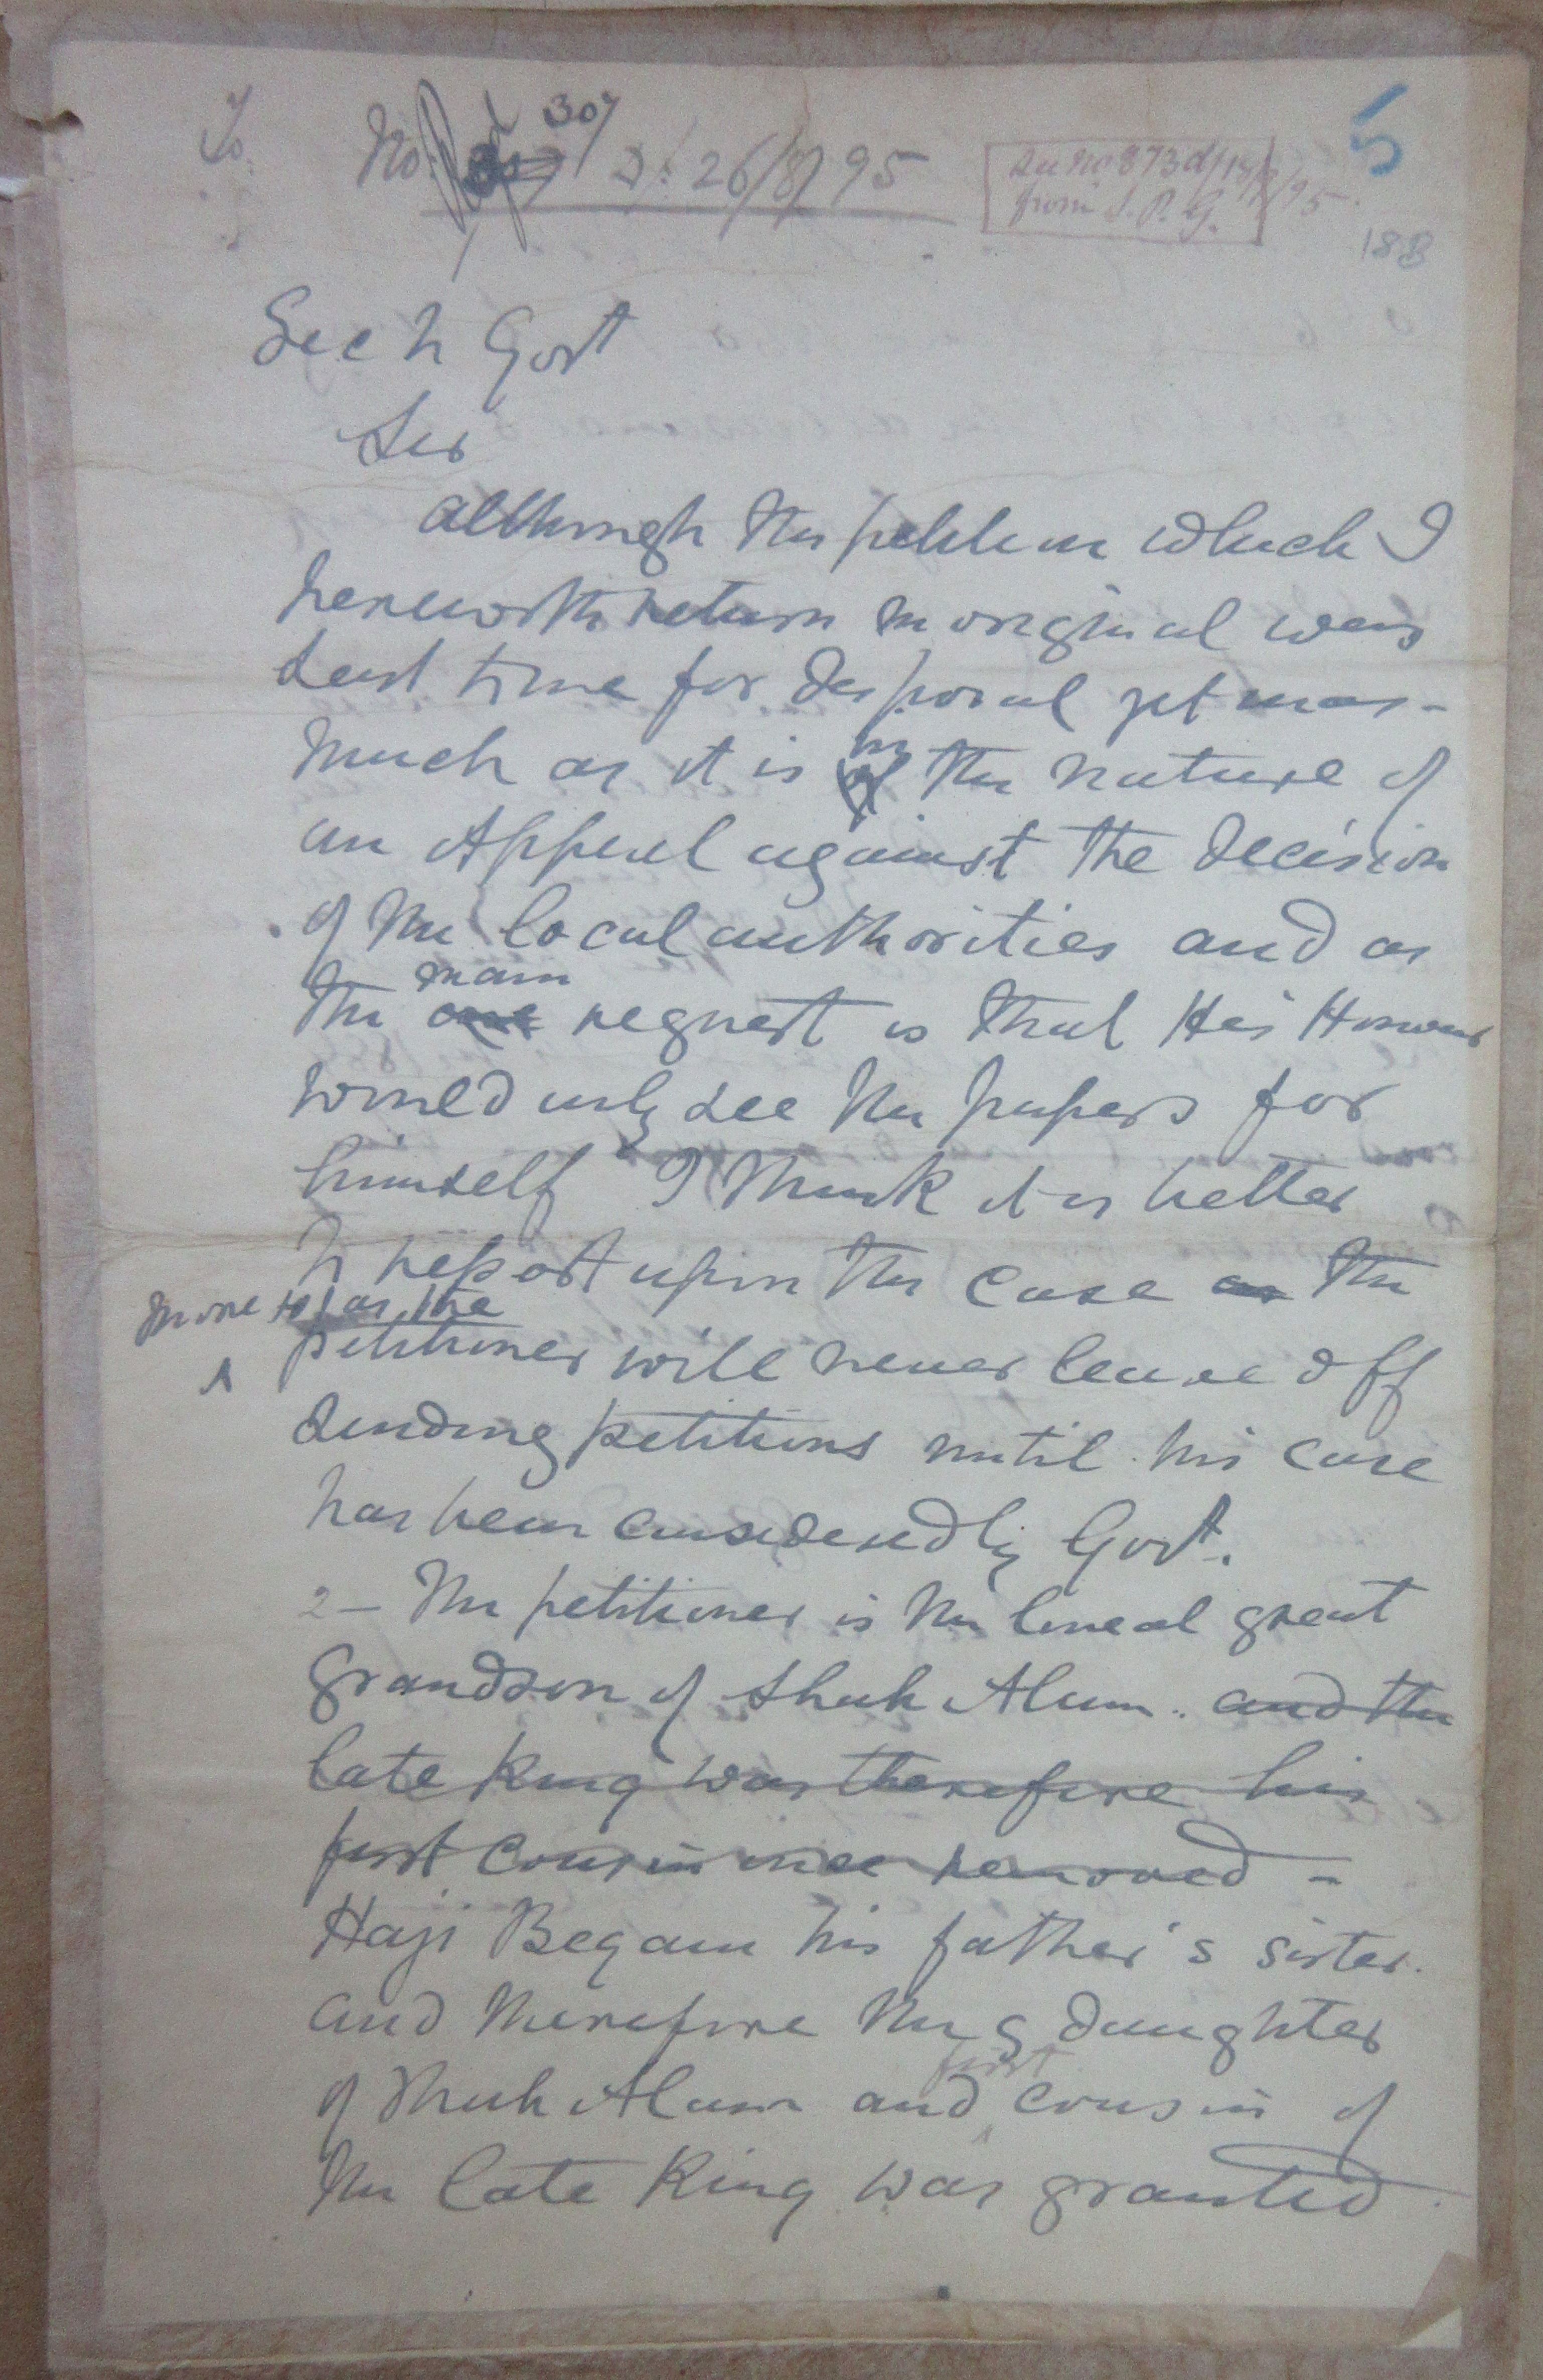 To
No. 307 D/ 26/8/95
See no 873 d/ 95
from S. P. G.
5
188
Sec to Govt
Sir
Although the petition which I
herewith return in original was
sent time for disposal yet inas-
much as it is in the nature of
an Appeal against the decision
of the local authorities and as
main
the one request is that His Honour
would only see the papers for
himself I think it is better
to report upon the case as the
more so as the
petitioner will never leave off
sending petitions until his case
has been considered by Govt.
2- The petitioner is the lineal great
grandson of Shah Alum. and the
late King was therefore his
first cousin once removed -
Haji Begam his father's sister
and therefore the g daughter
first
of Shah Alum and cousin of
the late King was granted